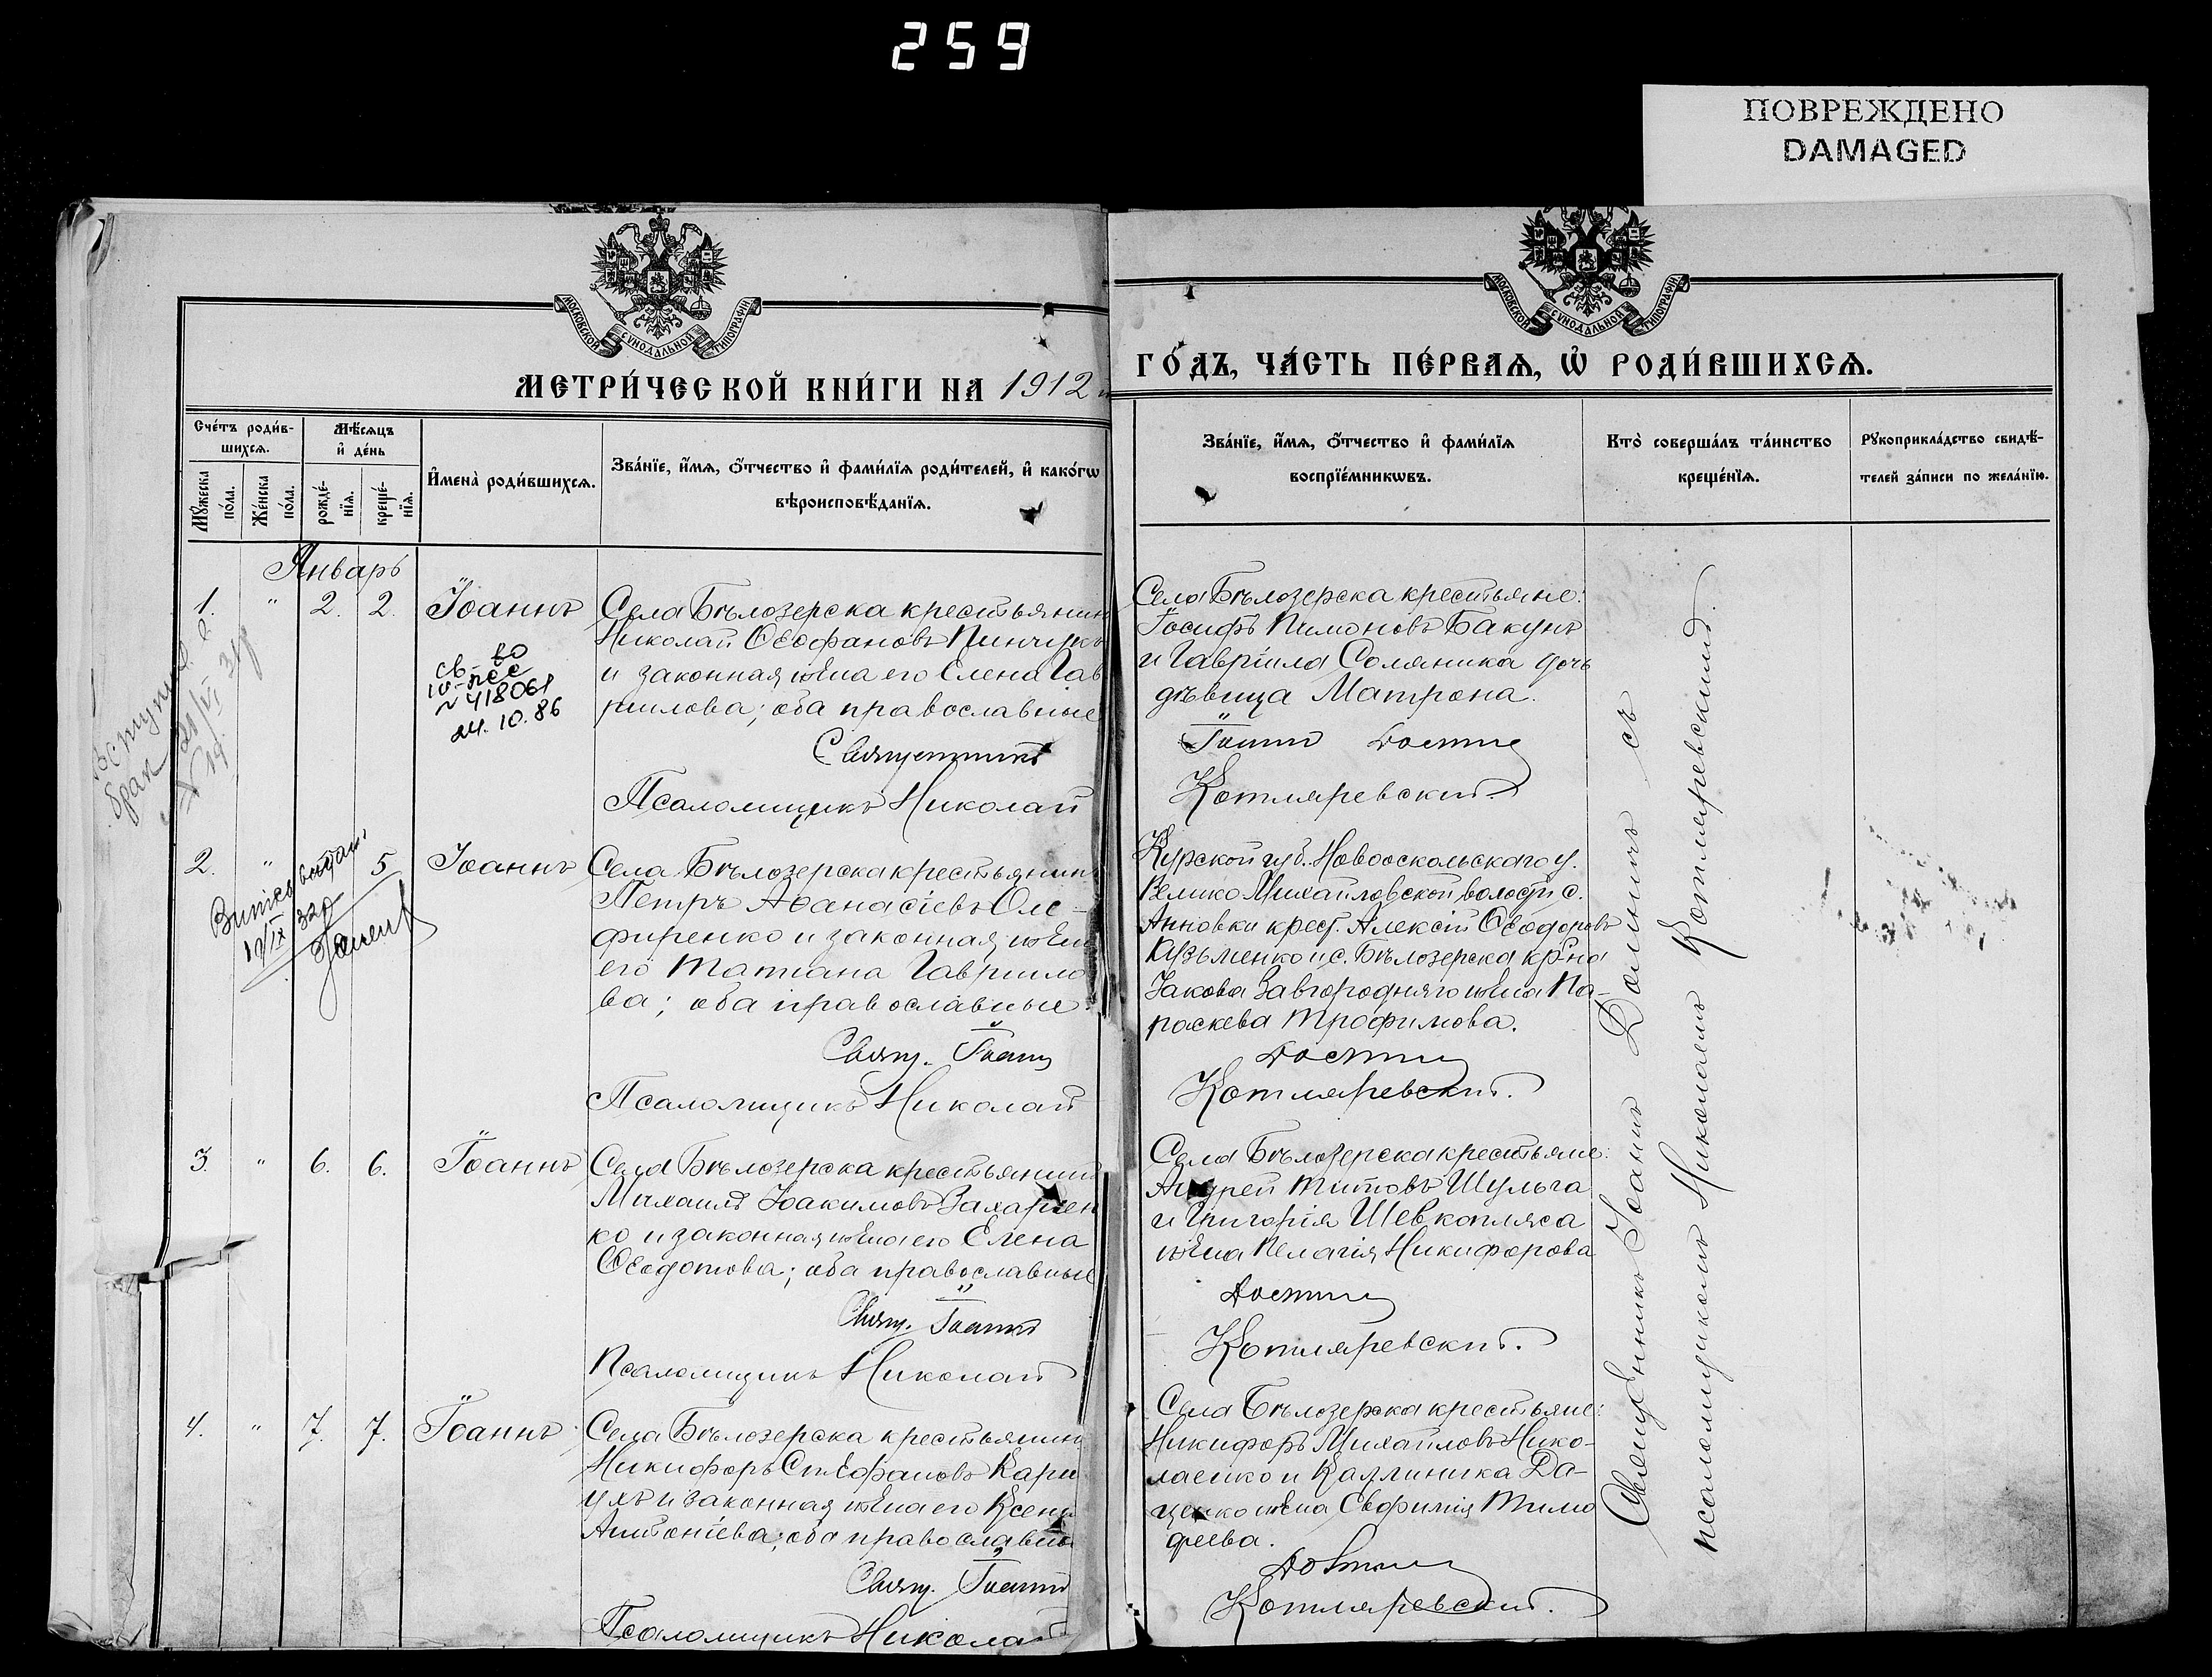 259
ПОВРЕЖДЕНО
DAMAGED
МОСКОВСКОЙ СѴНОДАЛЬНОЙ ТИПОГРАФІИ
МОСКОВСКОЙ СѴНОДАЛЬНОЙ ТИПОГРАФІИ
МЕТРИ́ЧЕСКОЙ КНИ́ГИ НА 1912
ГО́ДЪ, ЧА́СТЬ ПЕ́РВАѦ, Ѽ РОДИ́ВШИХСѦ.
Сче́тъ роди́в-
шихсѧ.
Мꙋ́жеска по́ла.
Же́нска по́ла.
Мѣ́сѧцъ
и҆ де́нь
рожде́-
нїѧ.
креще́-
нїѧ.
И҆мена̀ роди́вшихсѧ.
Зва́нїе, и҆́мѧ, ѻ҆́тчество и҆ фами́лїѧ роди́телей, и҆ како́гѡ
вѣроисповѣ́данїѧ.
Зва́нїе, и҆́мѧ, ѻ҆́тчество и҆ фами́лїѧ
воспрїе́мникѡвъ.
Кто̀ соверша́лъ та́инство
креще́нїѧ.
Рꙋкоприкла́дство свидѣ́-
телей за́писи по жела́нїю.
Январь
1. " 2. 2. Іоаннъ
Села Бѣлозерска крестьянин
Николай Ѳеофановъ Пинчукъ
и законная жена его Елена Гав
риилова; оба православные
Священникъ
Псаломщикъ Николай
св-во
№ 418061
24. 10. 86
брак
Села Бѣлозерска крестьяне:
Іосифъ Пимоновъ Бакунъ
и Гавріила Соляника дочь
дѣвица Матрона.
Іоаннъ
Котляревскій.
2. " 5 Іоаннъ
Села Бѣлозерска крестьянинъ
Петръ Аѳанасіевъ Оле-
фиренко и законная жена
его Татіана Гавриило
ва; оба православные.
Свящ. Іоаннъ
Псаломщикъ Николай
Курской губ. Новооскольскаго у.
Велико Михайловской волости с.
Анновки крест. Алексій Ѳеодоровъ
Кузьменко и с. Бѣлозерска кр-на
Іакова Завгородняго жена Па-
раскева Трофимова.
Котляревскій.
3. " 6. 6. Іоаннъ
Села Бѣлозерска крестьянинъ
Михаилъ Іоакимовъ Захарчен
ко и законная жена его Елена
Ѳеодотова; оба православные
Свящ. Іоаннъ
Псаломщикъ Николай
Села Бѣлозерска крестьяне:
Андрей Титовъ Шульга
и Григорія Шевкопляса
жена Пелагія Никифорова
Котляревскій.
4. " 7. 7. Іоаннъ
Села Бѣлозерска крестьянин
Никифоръ Стефановъ
и законная жена его Ксенія
Антоніева; оба православны
Свящ. Іоаннъ
Псаломщикъ Николай
Села Бѣлозерска крестьяне:
Никифоръ Михайловъ Нико-
лаенко и Каллиника Да-
ценко жена Евфимія Тимо
феева.
Котляревскій.
Священникъ Іоаннъ съ
псаломщикомъ Николаемъ Котляревскимъ.